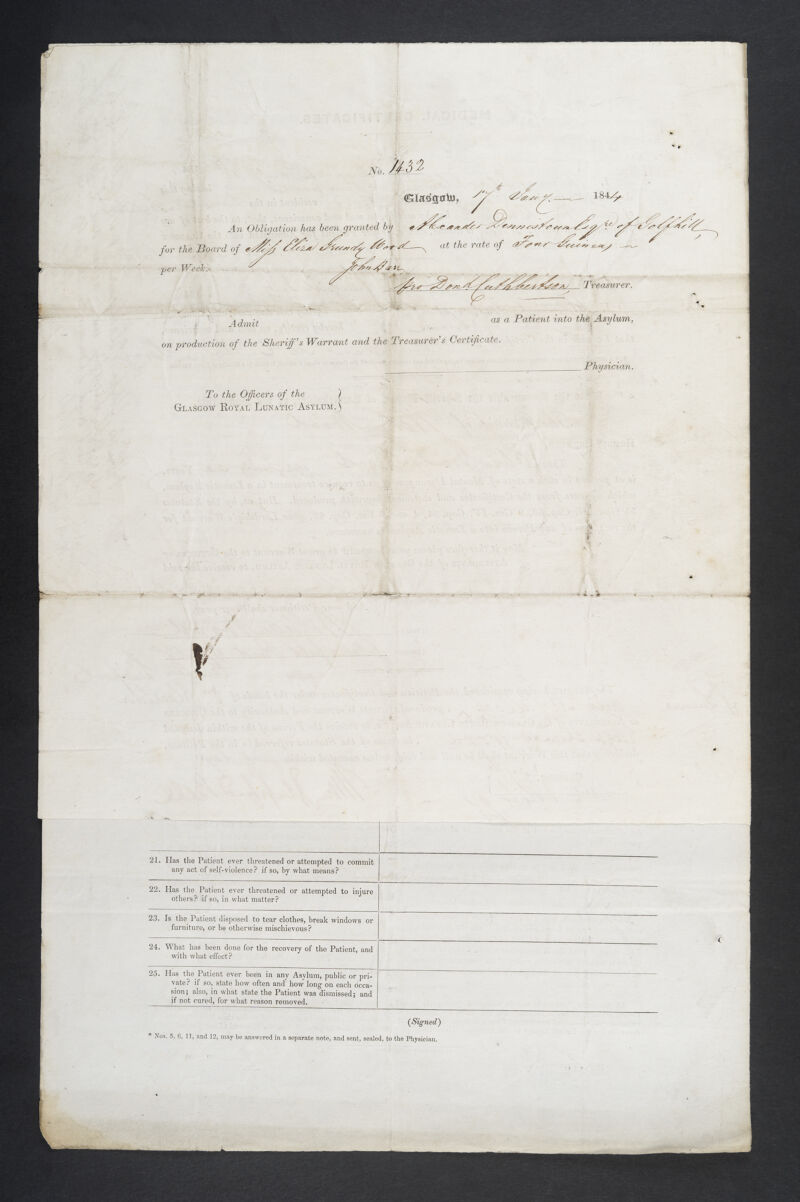 No. 1432
Glasgow, 17th Jany. 1844
An Obligation has been granted by Alexander Dennestoun Esqre of Golfhill,
for the Board of Miss Eliza Grundy Wood at the rate of Four Guineas
per Week.
John
pro Dond Cuthbertson Treasurer.
Admit as a Patient into the Asylum,
on production of the Sheriff's Warrant and the Treasurer's Certificate.
Physician.
To the Officers of the
Glasgow Royal Lunatic Asylum.
21. Has the Patient ever threatened or attempted to commit
any act of self-violence? if so, by what means?
22. Has the Patient ever threatened or attempted to injure
others? if so, in what matter?
23. Is the Patient disposed to tear clothes, break windows or
furniture, or be otherwise mischievous?
24. What has been done for the recovery of the Patient, and
with what effect?
25. Has the Patient ever been in any Asylum, public or pri-
vate? if so, state how often and how long on each occa-
sion; also, in what state the Patient was dismissed; and
if not cured, for what reason removed.
(Signed)
* Nos. 5, 6, 11, and 12, may be answered in a separate note, and sent, sealed, to the Physician.